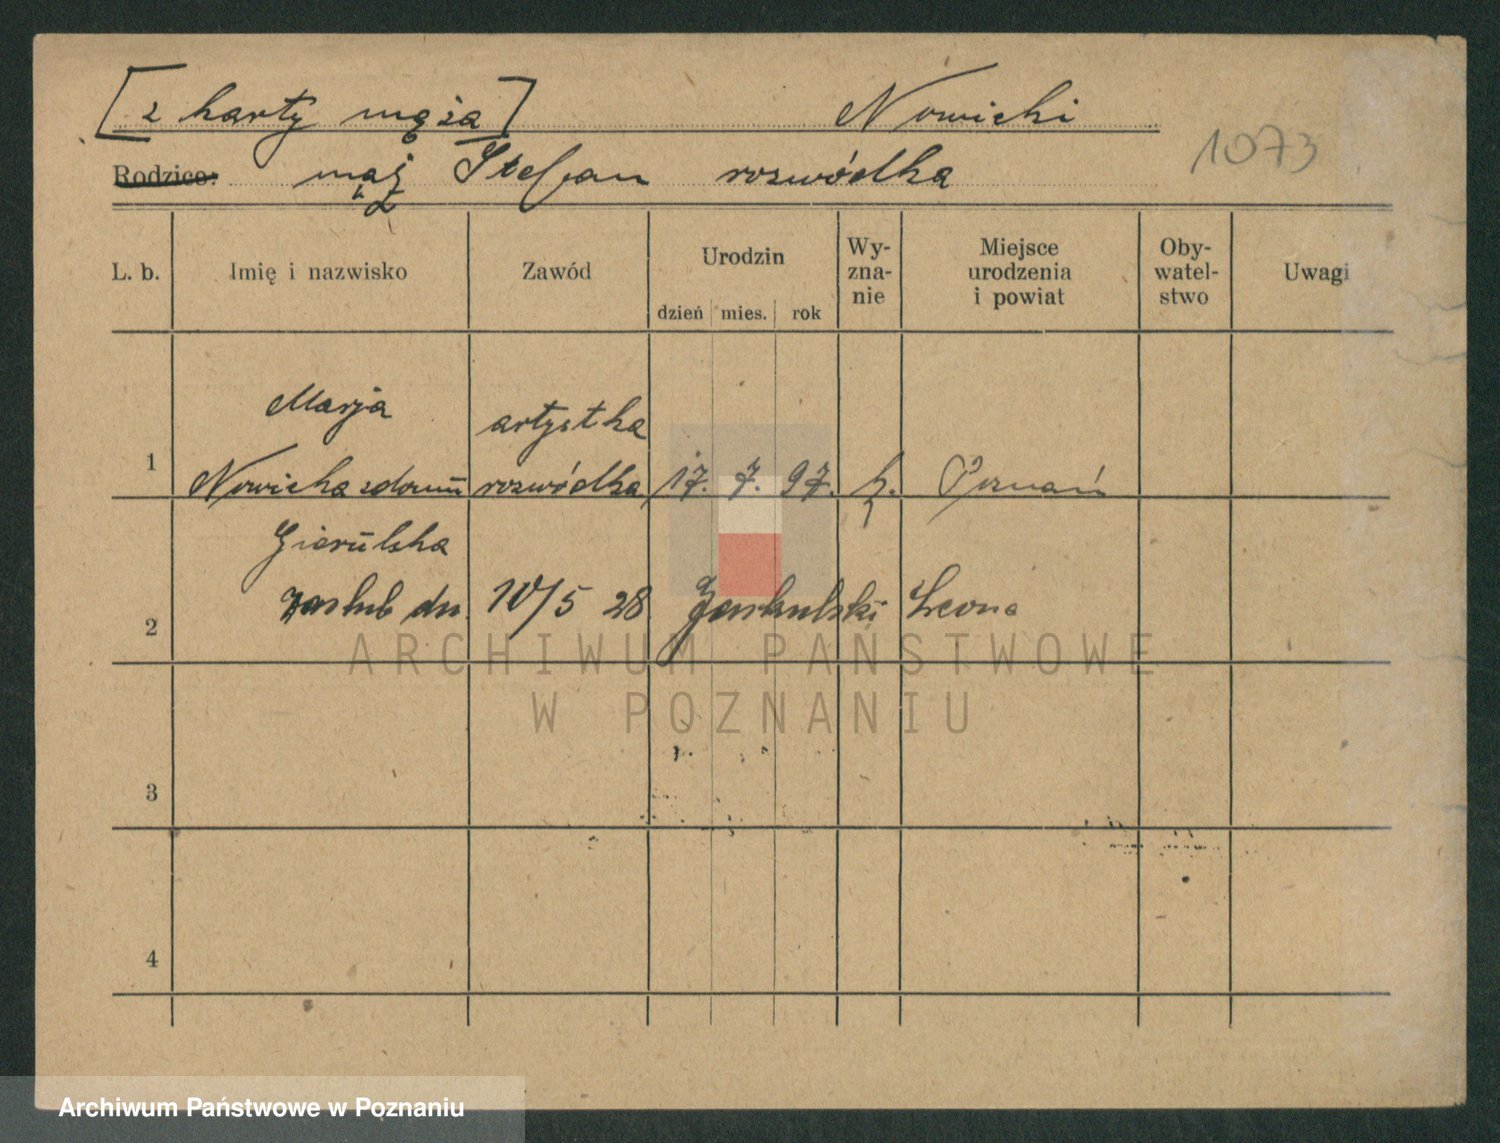 [z karty męża] Nowicki
1073
Rodzice: mąż Stefan rozwódka
L. b. Imię i nazwisko Zawód Urodzin dzień mies. rok Wyznanie Miejsce urodzenia i powiat Obywatelstwo Uwagi
Marja artystka
1 Nowicka zdomu rozwódka 17. 7. 97. k. Poznań
Gierulska
2 zaślub dn. 10/5 28 Jaskulski Leona
3
4
ARCHIWUM PAŃSTWOWE
W POZNANIU
Archiwum Państwowe w Poznaniu